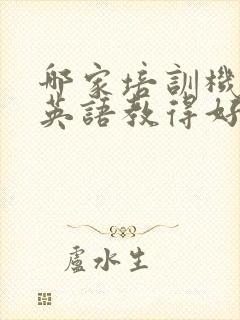 哪家培訓機
英語教得好
盧水生